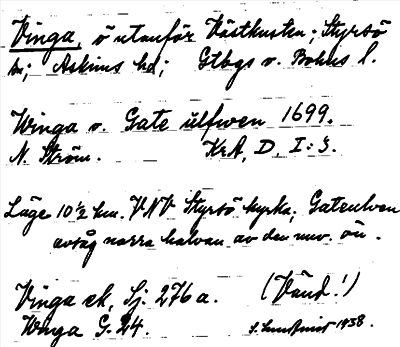 Vinga, ö utanför Västkusten; Styrsö
sn; Askims hd; Gtbgs o. Bohus l.
Winga o. Gate ülfwen 1699.
N. Ström. KrA, D, I:3.
Läge 10 ½ km. VNV Styrsö kyrka; Gateulven
avsåg norra halvan av den nuv. ön.
Vinga ek, Sj. 276 a. (Vänd!)
Winga G. 24. 1938.